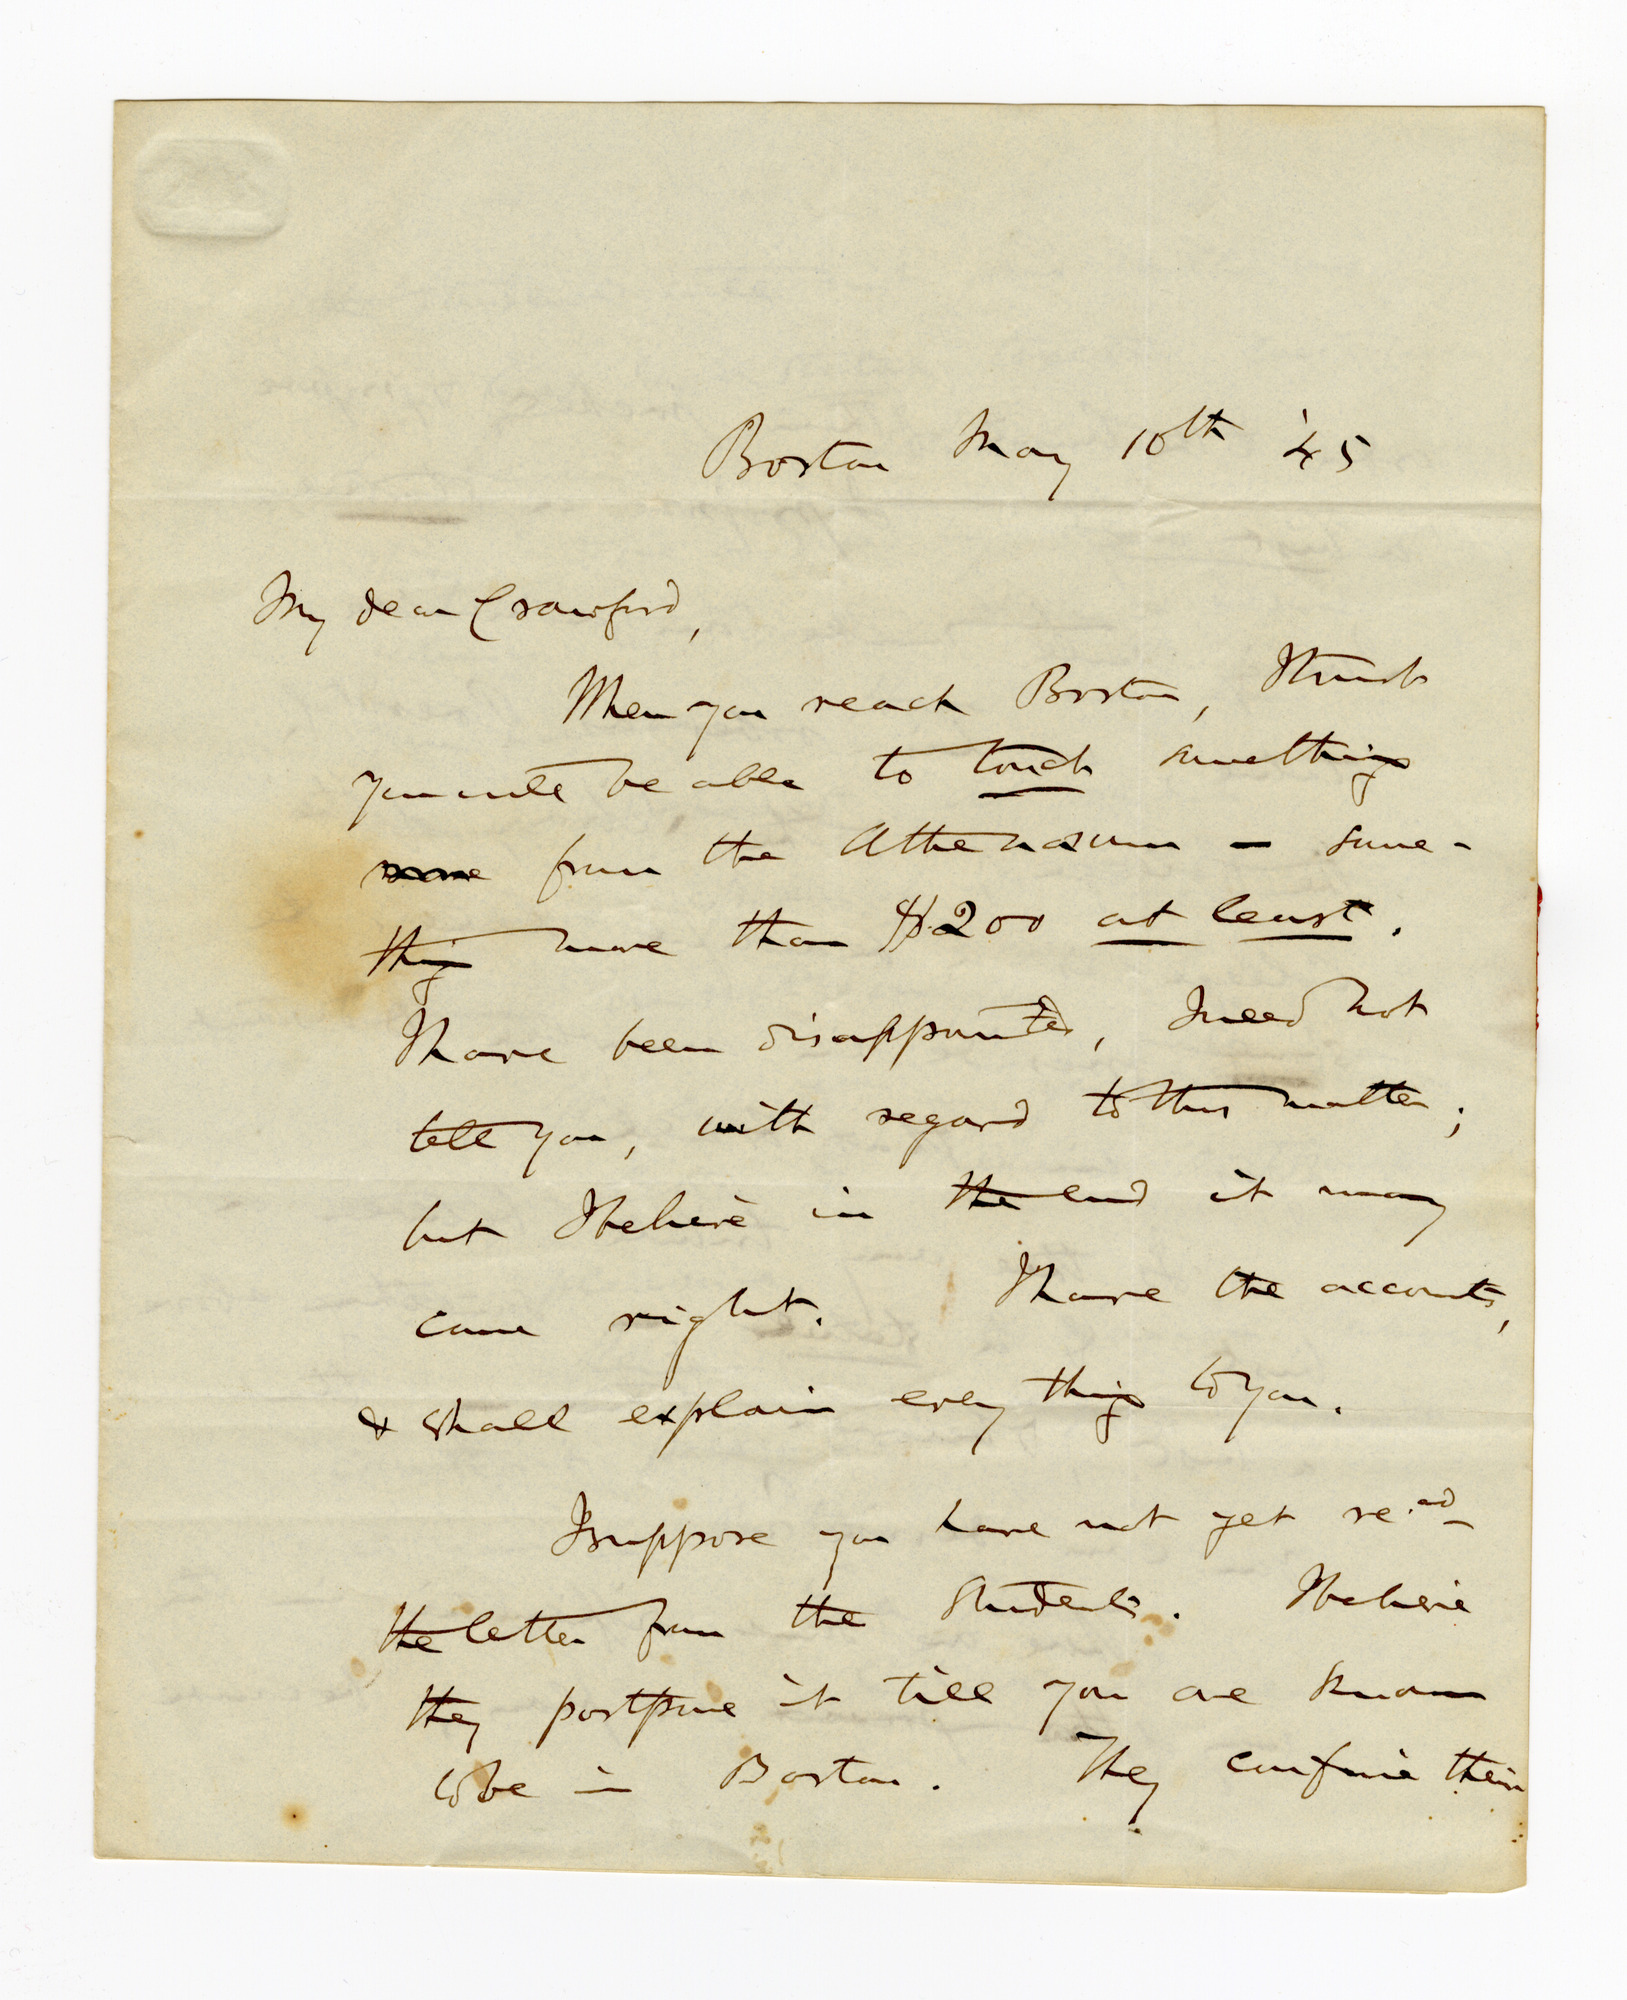 Boston May 10th '45
My dear Crawford,
When you reach Boston, I think
you will be able to touch something
from the Athenaeum — some-
thing more than $200 at least.
I have been disappointed, I need not
tell you, with regard to this matter;
but I believe in the end it may
come right. I have the accounts,
& shall explain every thing to you.
I suppose you have not yet re.ed
the letter from the Students. I believe
they postpone it till you are known
to be in Boston. They confine their